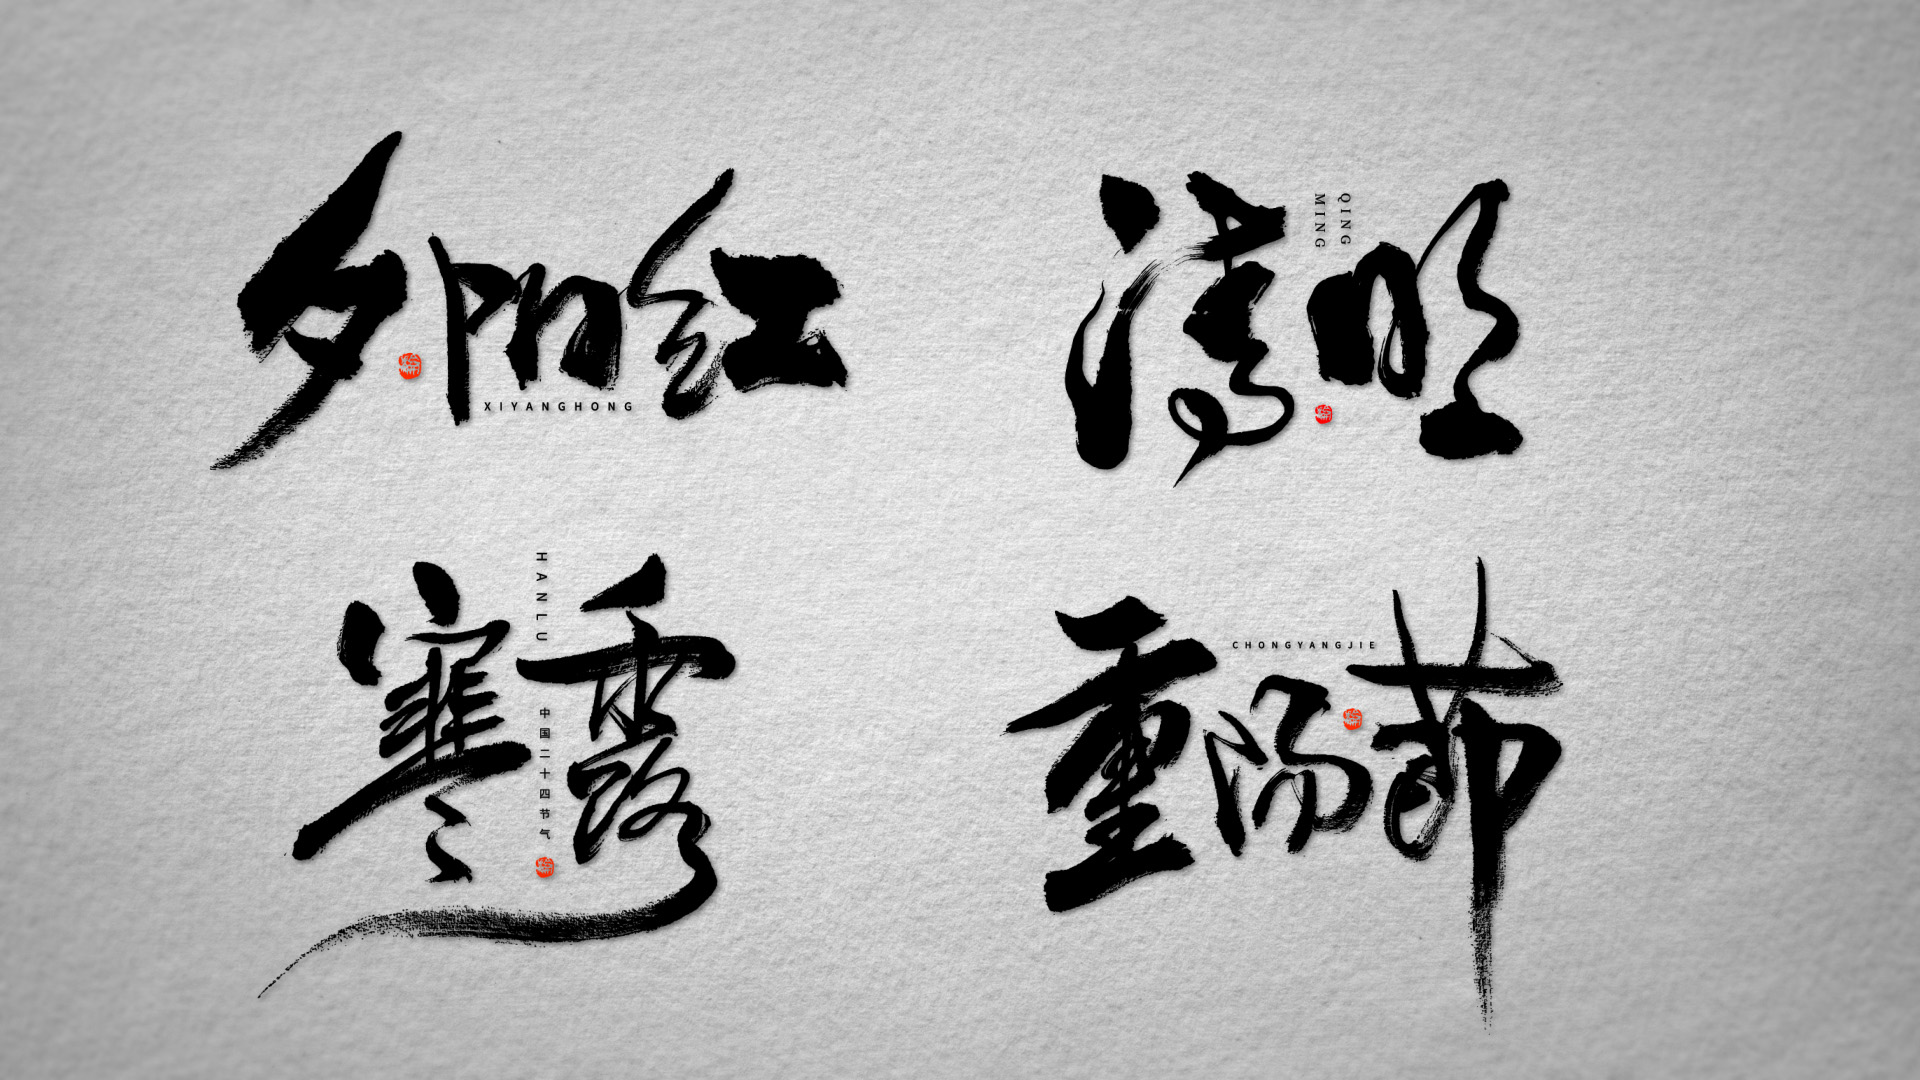 夕阳红
XIYANGHONG
清明
QING
MING
寒露
HANLU
中国二十四节气
重陽節
CHONGYANGJIE